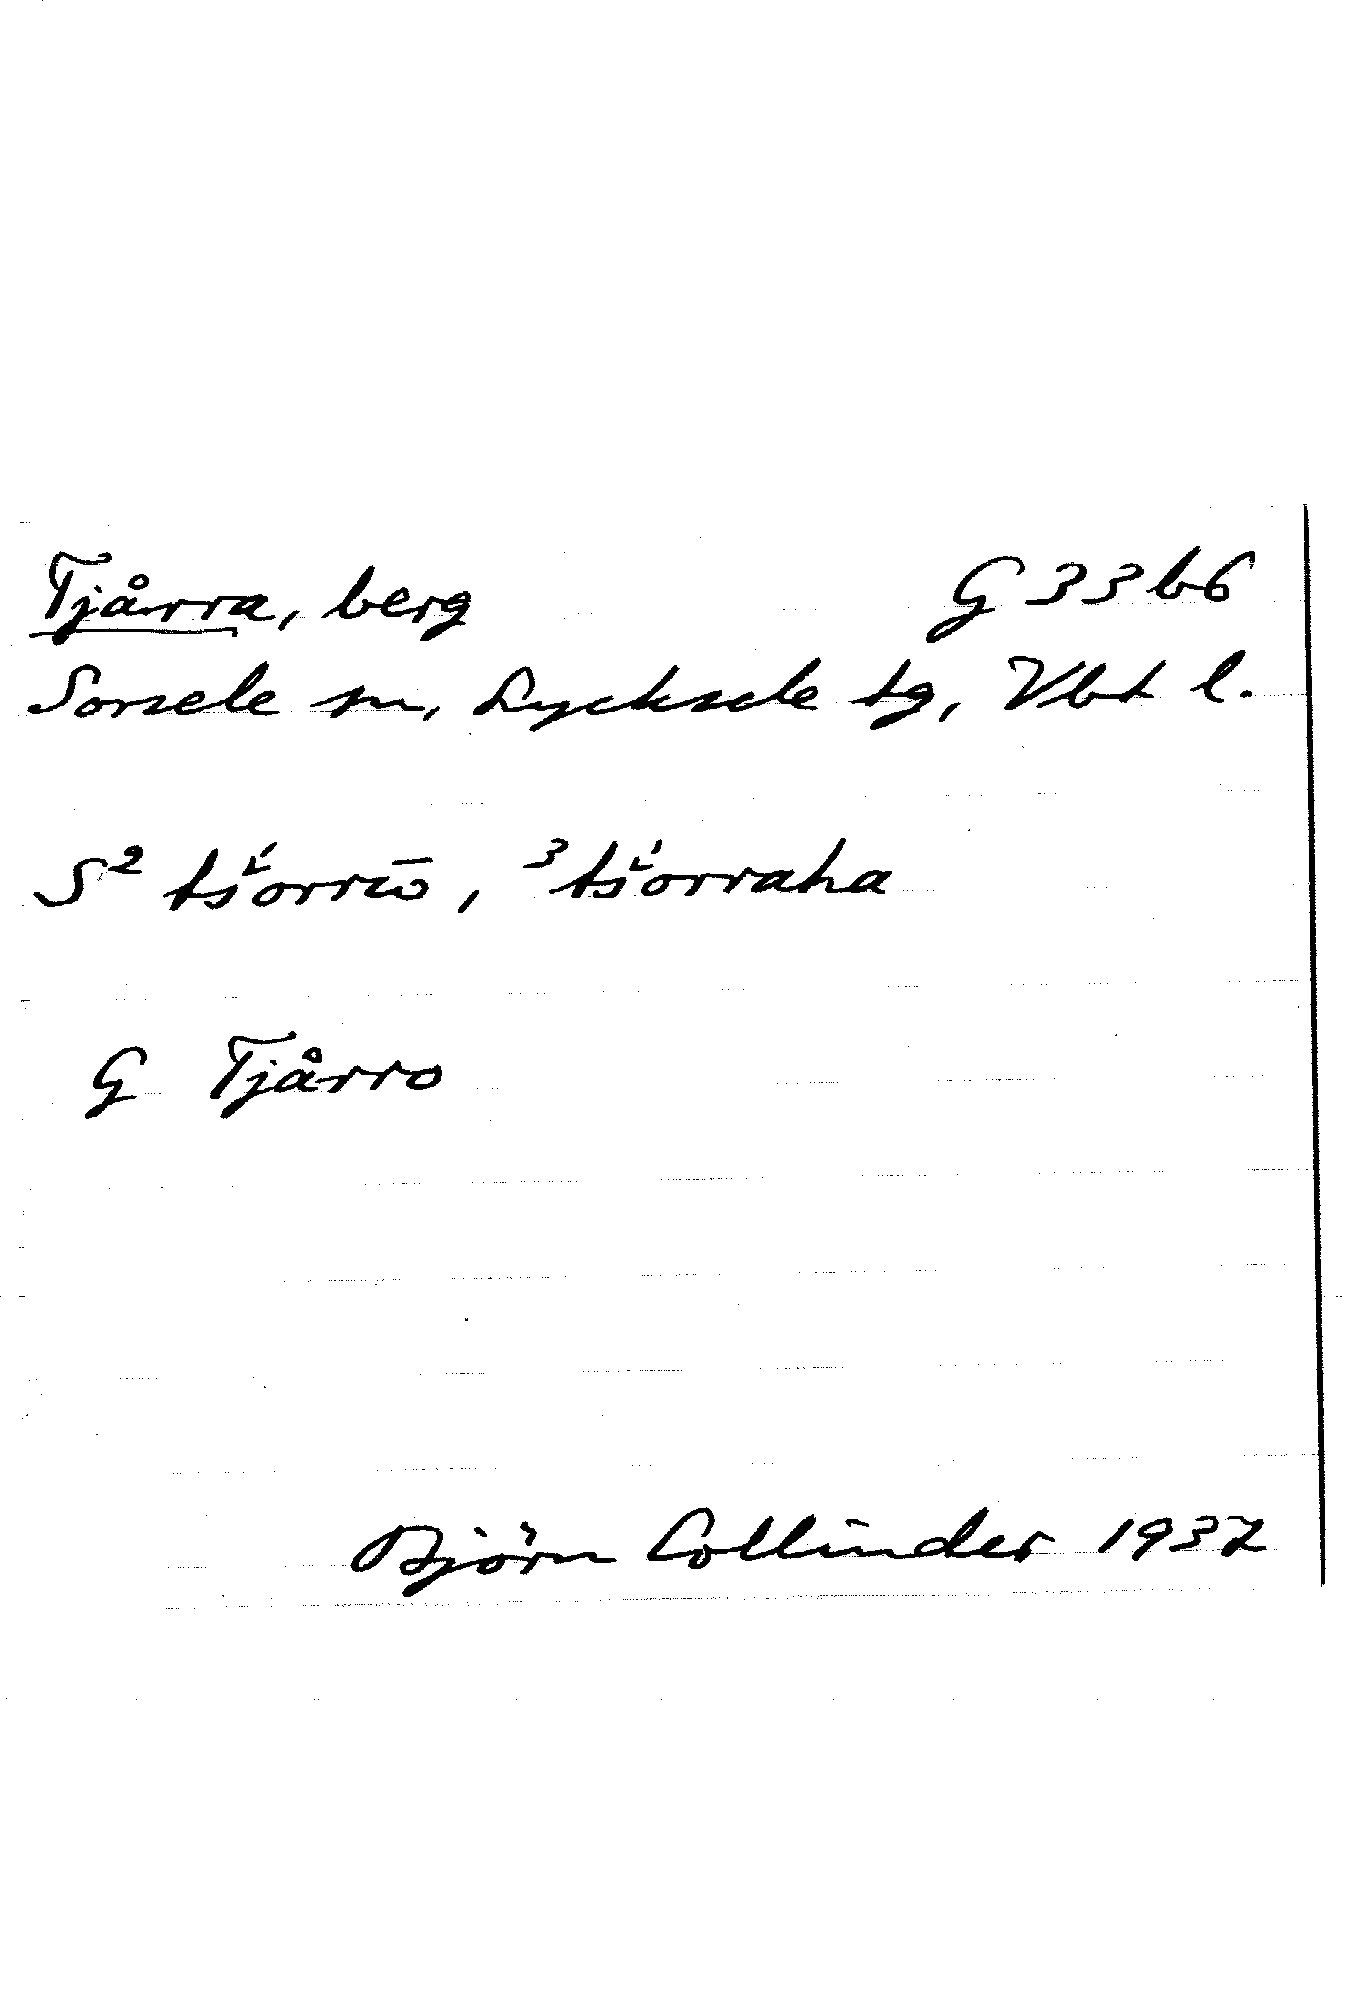 Tjårra, berg G 33 b6
Sorsele sn, Lycksele tg, Vbt l.
S² tś́orrω̄, ³tś́orraha
G Tjårro
Björn Collinder 1937